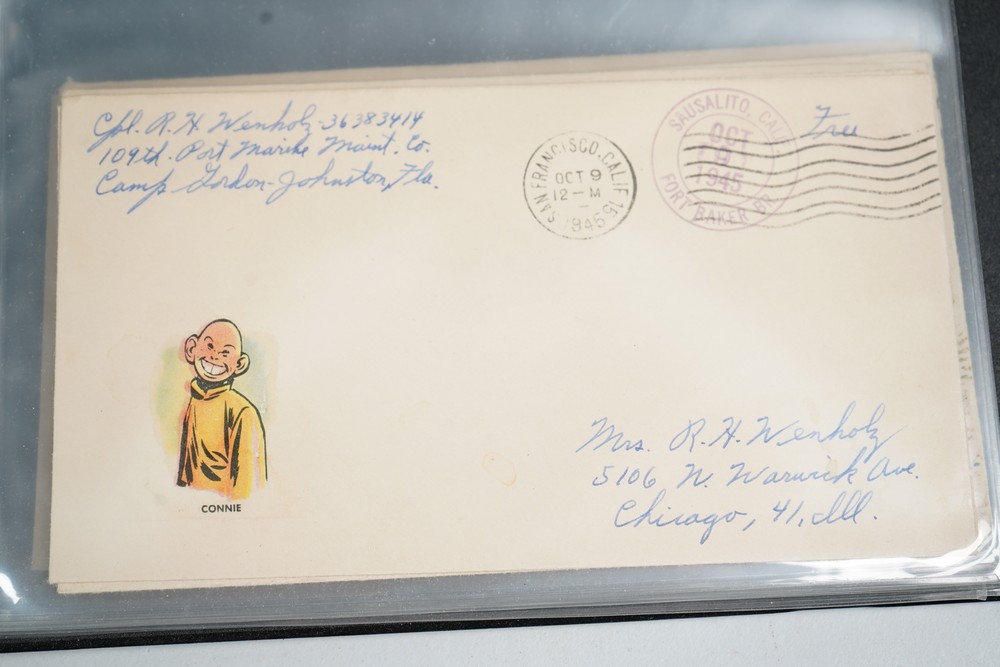 Cpl. R. H. Wenholz-36383414
109th. Port Marine Maint. Co.
Camp Gordon-Johnston, Fla.
SAN FRANCISCO, CALIF. 15
OCT 9
12-M
1945
SAUSALITO, CALIF.
OCT
1945
FORT BAKER BR.
Free
CONNIE
Mrs. R. H. Wenholz
5106 N. Warwick Ave.
Chicago, 41, Ill.